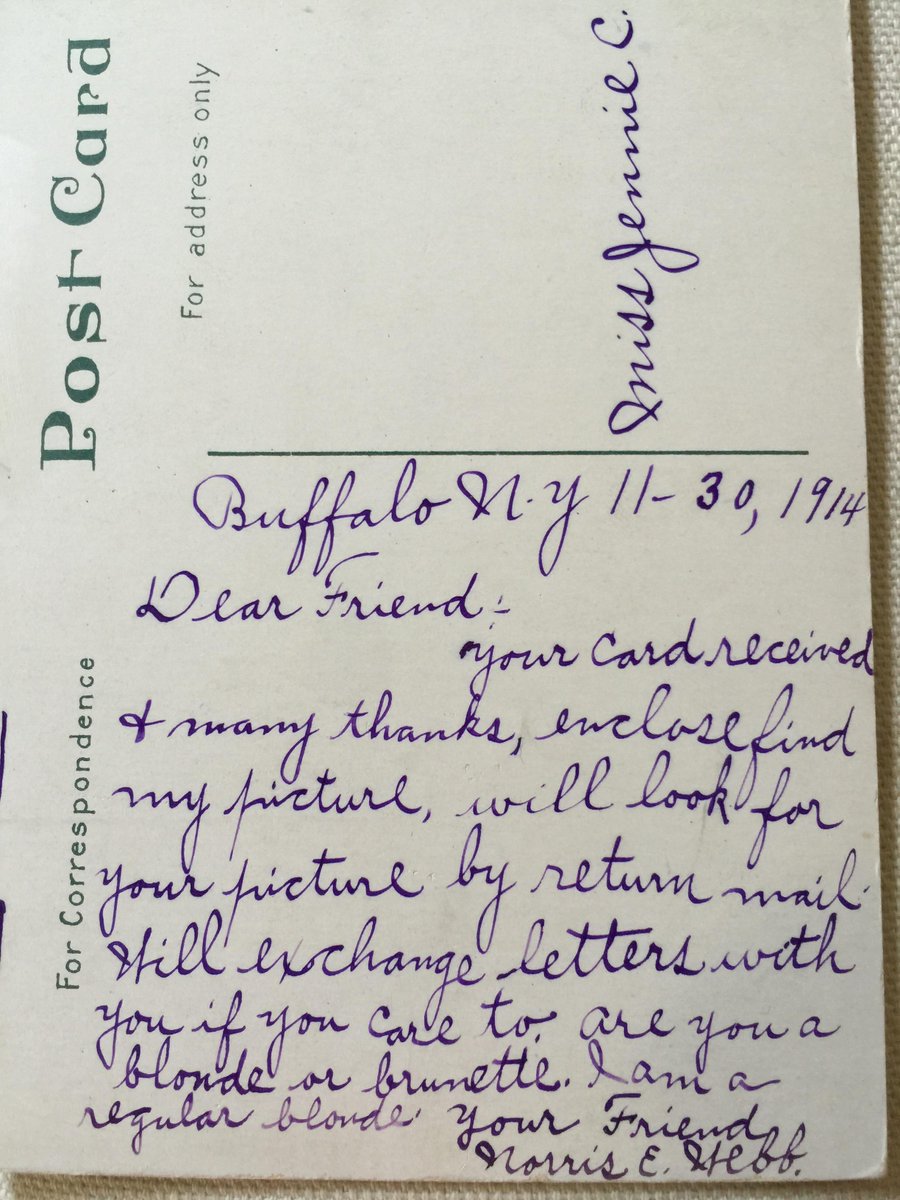 Post Card
For address only
Miss Jennie C.
For Correspondence
Buffalo N.Y 11-30, 1914
Dear Friend:-
your card received
& many thanks, enclose find
my picture, will look for
your picture by return mail.
Will exchange letters with
you if you care to. are you a
blonde or brunette. I am a
regular blonde. your Friend
Norris E. Webb.